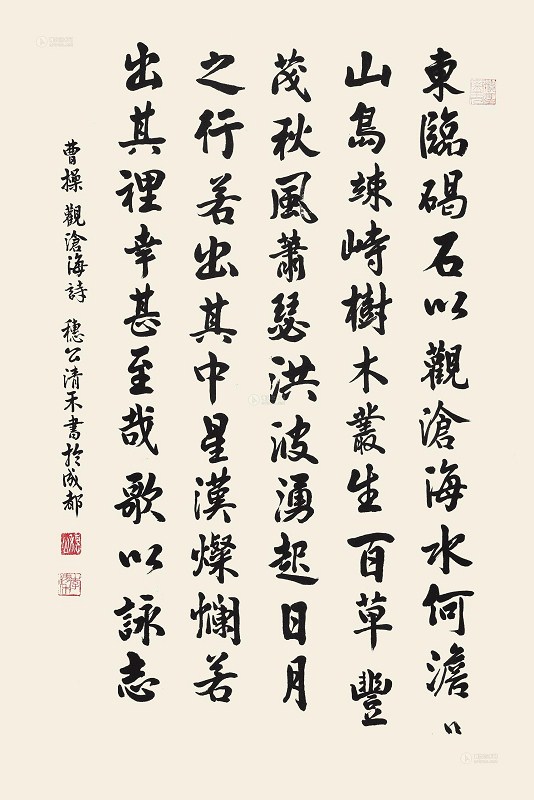 東臨碣石以觀滄海水何澹〻
山島竦峙樹木叢生百草豐
茂秋風蕭瑟洪波湧起日月
之行若出其中星漢燦爛若
出其裡幸甚至哉歌以詠志
曹操 觀滄海詩 穗公清禾書於成都